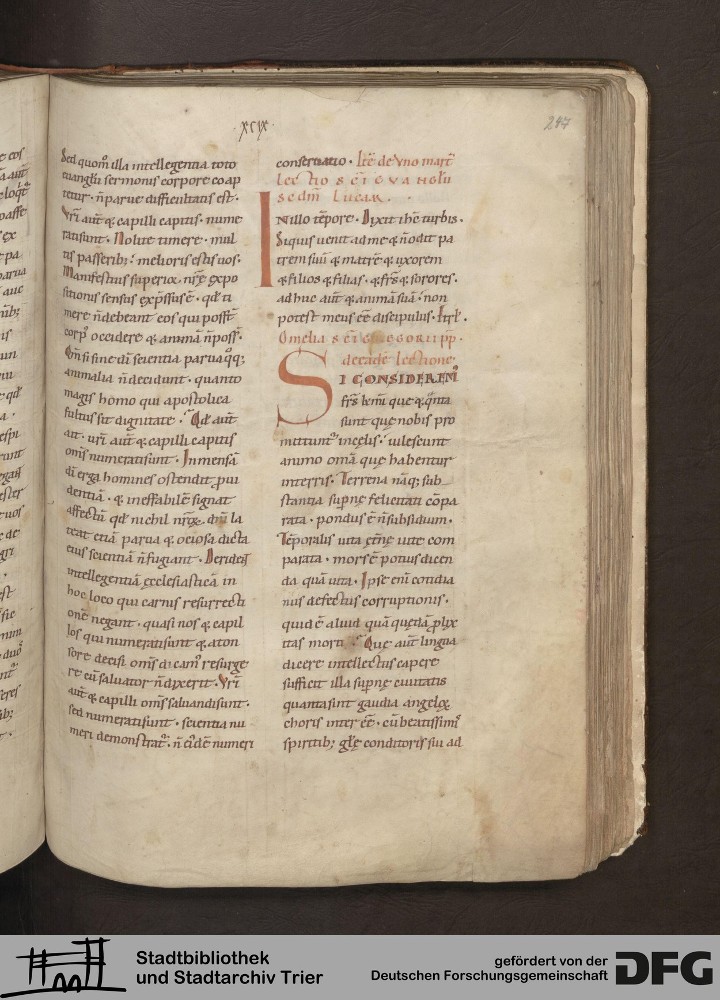 ·xcix·
247
Sed quom̄ illa intellegentia toto
euanglii sermonis corpore coap
tetur · n̄ parue difficultatis est ·
Vr̄i aut̄ & capilli capitis · nume
rati sunt · Nolite timere · mul
tis passerib; · melioris estis uos ·
Manifestius superiox, nr̄ę expo
sitionis sensus exp̄ssus ē · qd̄ ti
mere n̄ debeant eos qui posst̄
corp̄ occidere & animā n̄ poss̄ ·
Q̄m si sine dī scientia parua q̄q;
animalia n̄ decidunt · quanto
magis homo qui apostolica
fultus sit dignitate · Qd̄ aut̄
ait · uri aut̄ & capilli capitis
om̄s numerati sunt · Inmensā
dī erga homines ostendit ,pui
dentiā · & ineffabilē signat
affectū qd̄ nichil nr̄ox, dn̄m la
teat etiā parua & ociosa dicta
eius scientiā n̄ fugiant · Derident
intellegentiā ęcclesiasticā in
hoc loco qui carnis resurrecti
onē negant · quasi nos & capil
los qui numerati sunt & a ton
sore decisi om̄s dicam̄ resurge
re cū saluator n̄ dixerit · Vr̄i
aut̄ & capilli om̄s saluandi sunt ·
sed numerati sunt · scientia nu
meri demonstrat̄ · n̄ eidē numeri
conseruatio · Itē de uno mart̄
lectio sc̄i euanglii
sc̄dm̄ lucam ·
IN illo tēpore · Dixit ih̄c turbis ·
Siquis uenit ad me & n̄ odit pa
trem suū & matrē & uxorem
& filios & filias · & fr̄s & sorores ·
adhuc aut̄ & animā suā · non
potest meus eē discipulus · &rl̄ ·
Omelia sc̄i gregorii pp̄ ·
de eadē lectione ·
SI CONSIDEREM̄
fr̄s kmi que & q̄nta
sunt quę nobis pro
mittunt̄ in cęlis · uilescunt
animo om̄a quę habentur
in terris · Terrena nāq; sub
stantia supnę felicitati cōpa
rata · pondus ē n̄ subsidium ·
Tēporalis uita ęt̄ne uite com
parata · mors ē potius dicen
da quā uita · Ipse eni cotidia
nus defectus corruptionis ·
quid ē aliud quā quędā plix
itas mortis · Que aut̄ lingua
dicere intellectus capere
sufficit illa supnę ciuitatis
quanta sint gaudia angelox,
choris inter eē · cū beatissimis
spiritib; glę conditoris siu ad
Stadtbibliothek
und Stadtarchiv Trier
gefördert von der
Deutschen Forschungsgemeinschaft
DFG